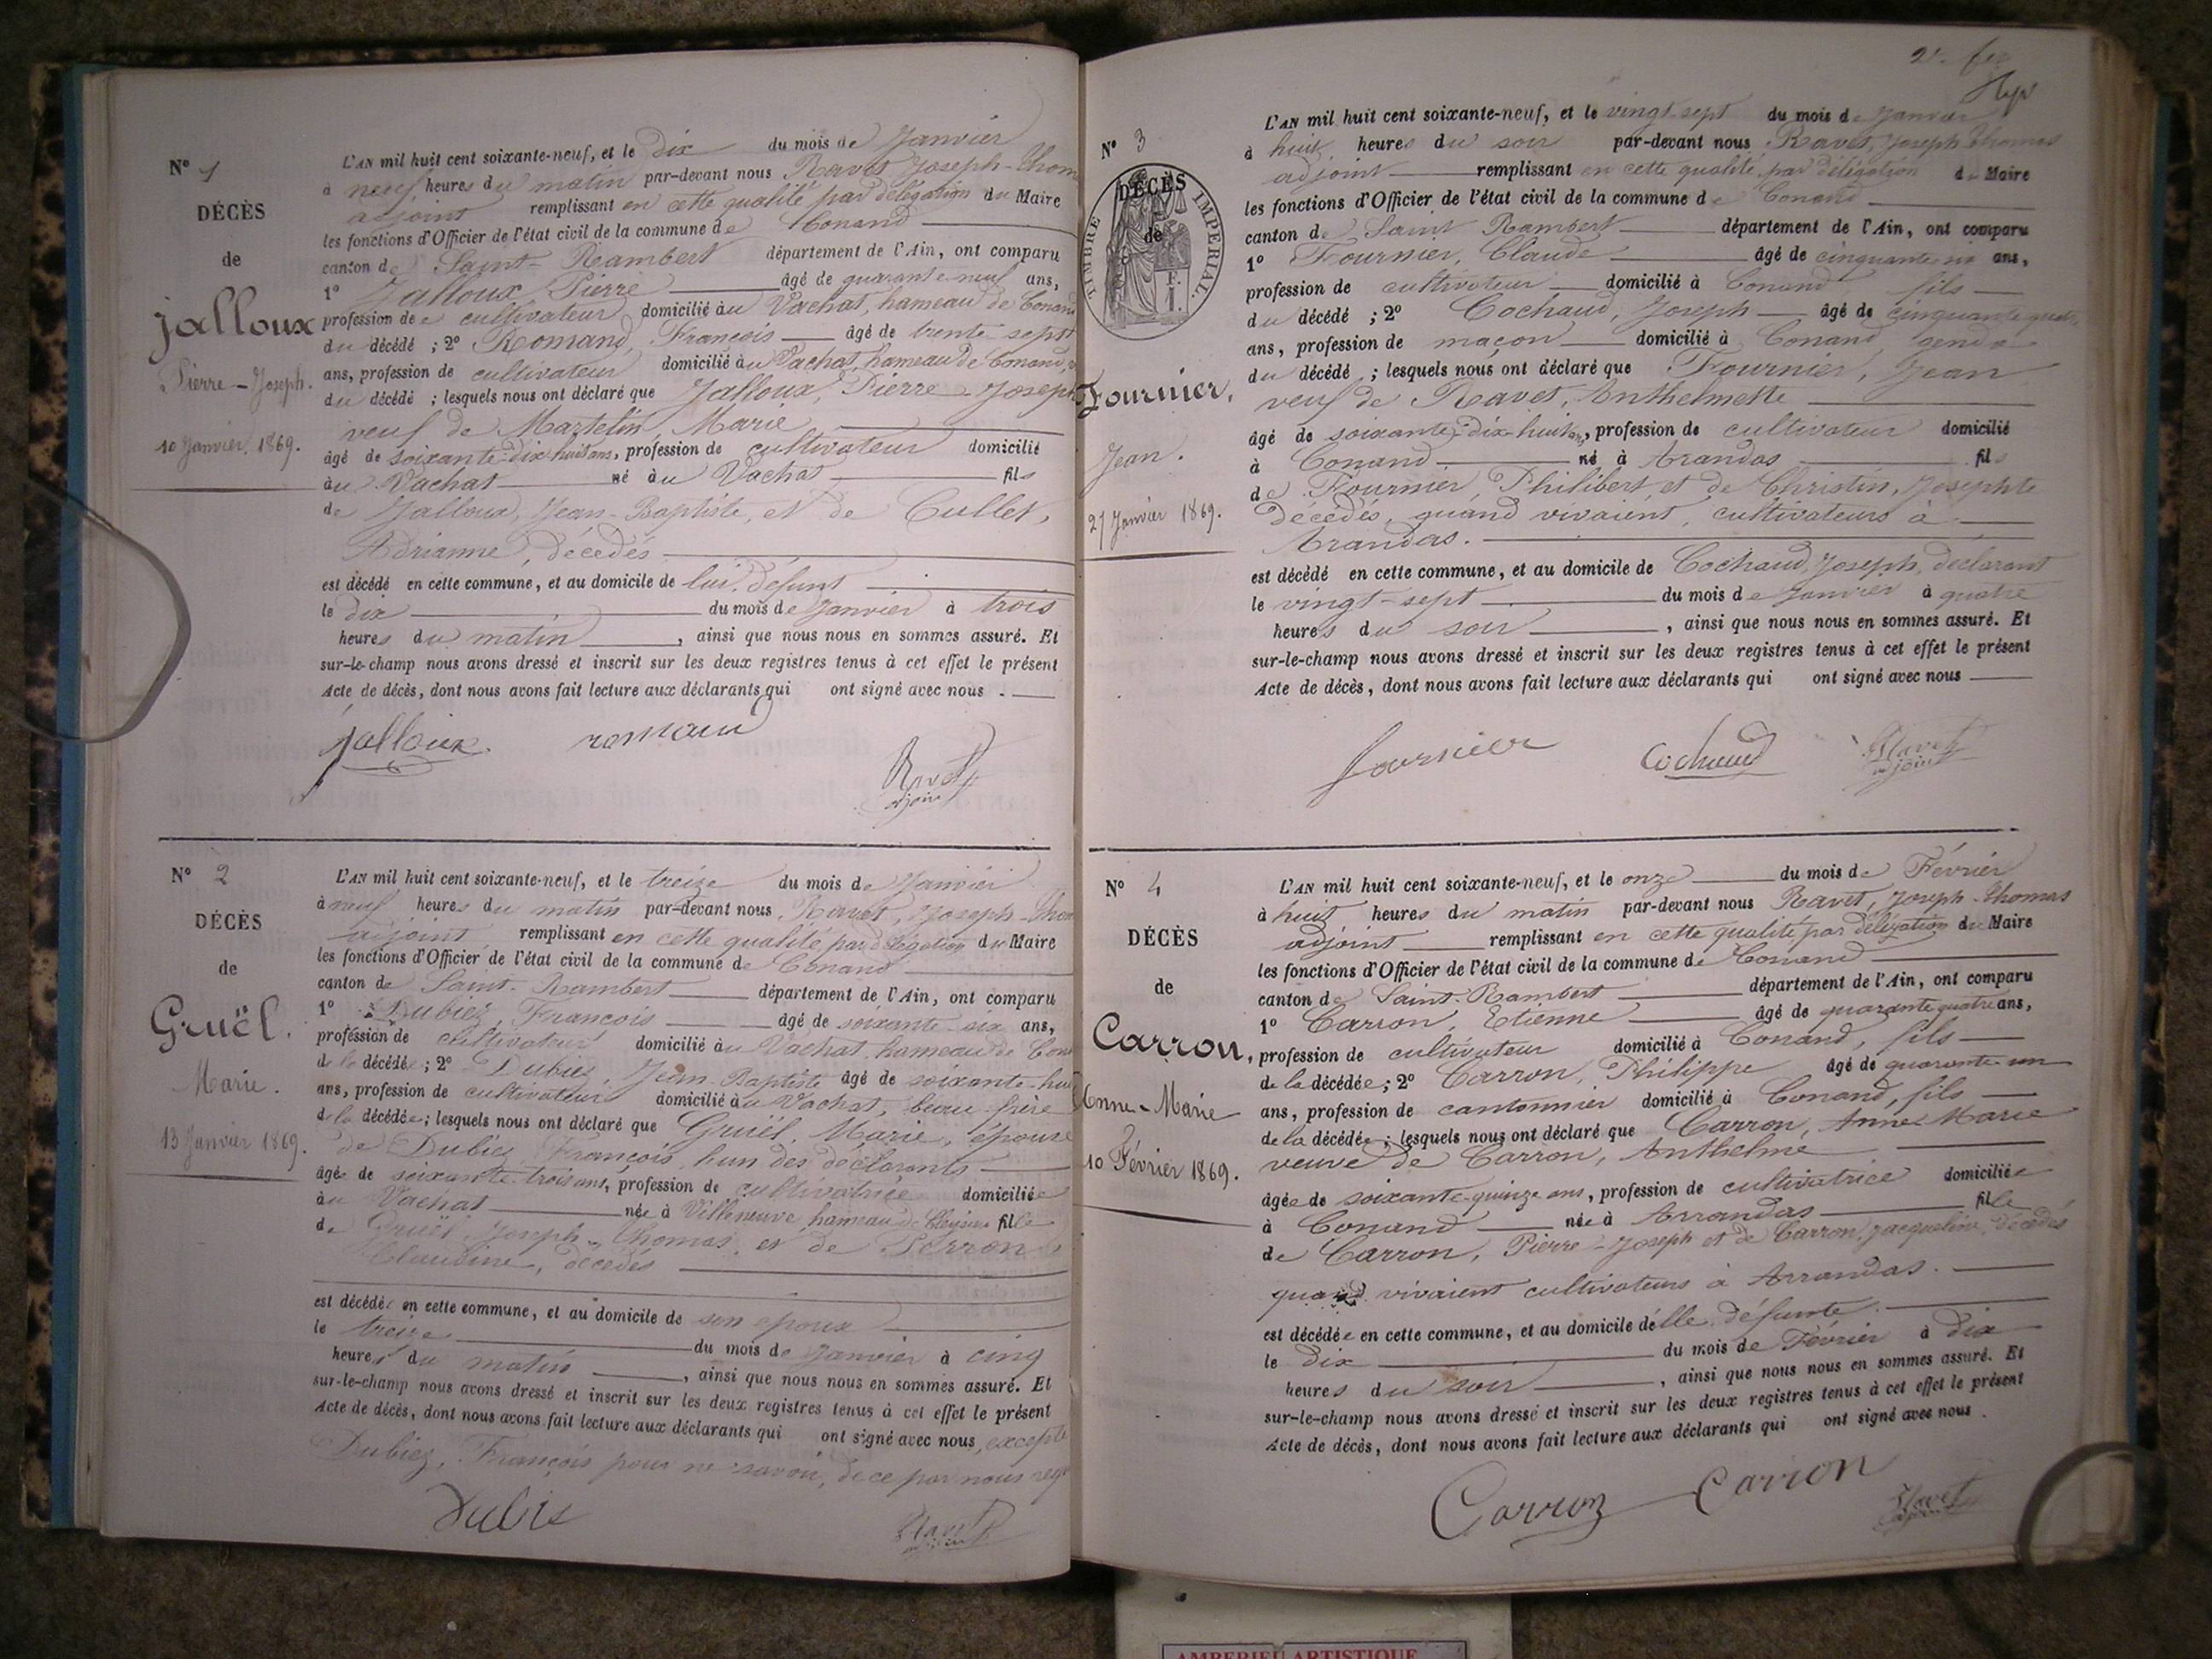 N° 1
DÉCÈS
de
Jalloux
Pierre-Joseph.
10 Janvier 1869.
L'AN mil huit cent soixante-neuf, et le dix du mois de Janvier
à neuf heures du matin par-devant nous Ravet Joseph-Thom
adjoint remplissant en cette qualité par délégation du Maire
les fonctions d'Officier de l'état civil de la commune de Conand
canton de Saint-Rambert département de l'Ain, ont comparu
1° Jalloux Pierre âgé de quarante-neuf ans,
profession de cultivateur domicilié au Vachat, hameau de Conand
du décédé ; 2° Romand, François âgé de trente-sept
ans, profession de cultivateur domicilié au Vachat, hameau de Conand
du décédé ; lesquels nous ont déclaré que Jalloux, Pierre-Joseph
veuf de Martelin, Marie
âgé de soixante-dix-huit ans, profession de cultivateur domicilié
au Vachat né au Vachat fils
de Jalloux, Jean-Baptiste, et de Cullet,
Adrianne, décédés
est décédé en cette commune, et au domicile de lui, défunt
le dix du mois de Janvier à trois
heures du matin, ainsi que nous nous en sommes assuré. Et
sur-le-champ nous avons dressé et inscrit sur les deux registres tenus à cet effet le présent
Acte de décès, dont nous avons fait lecture aux déclarants qui ont signé avec nous.
Jalloux romand
Ravet
adjoint
N° 2
DÉCÈS
de
Gruël.
Marie.
13 Janvier 1869.
L'AN mil huit cent soixante-neuf, et le treize du mois de Janvier
à neuf heures du matin par-devant nous Ravet, Joseph-Thom
adjoint remplissant en cette qualité par délégation du Maire
les fonctions d'Officier de l'état civil de la commune de Conand
canton de Saint-Rambert département de l'Ain, ont comparu
1° Dubiez, François âgé de soixante-six ans,
profession de cultivateur domicilié au Vachat hameau de Con
de la décédée ; 2° Dubiez, Jean-Baptiste âgé de soixante-hui
ans, profession de cultivateur domicilié au Vachat, beau-frère
de la décédée ; lesquels nous ont déclaré que Gruël, Marie, épouse
de Dubiez François, l'un des déclarants
âgée de soixante-trois ans, profession de cultivatrice domiciliée
au Vachat née à Villeneuve hameau de Cleyzieu fille
de Gruël, Joseph-Thomas, et de Perron
Claudine, décédés
est décédée en cette commune, et au domicile de son époux
le treize du mois de Janvier à cinq
heures du matin, ainsi que nous nous en sommes assuré. Et
sur-le-champ nous avons dressé et inscrit sur les deux registres tenus à cet effet le présent
Acte de décès, dont nous avons fait lecture aux déclarants qui ont signé avec nous, excepté
Dubiez, François pour ne savoir, de ce par nous requ
Dubis
Ravet
adjoint
N° 3
TIMBRE IMPERIAL
DÉCÈS
de
Fournier,
Jean.
27 Janvier 1869.
L'AN mil huit cent soixante-neuf, et le vingt-sept du mois de Janvier
à huit heures du soir par-devant nous Ravet, Joseph Thomas
adjoint remplissant en cette qualité par délégation du Maire
les fonctions d'Officier de l'état civil de la commune de Conand
canton de Saint Rambert département de l'Ain, ont comparu
1° Fournier, Claude âgé de cinquante-six ans,
profession de cultivateur domicilié à Conand fils
du décédé ; 2° Cochaud, Joseph âgé de cinquante quat
ans, profession de maçon domicilié à Conand, gendre
du décédé ; lesquels nous ont déclaré que Fournier, Jean
veuf de Ravet, Anthelmette
âgé de soixante-dix-huit ans, profession de cultivateur domicilié
à Conand né à Arandas fils
de Fournier, Philibert, et de Christin, Josephte
décédés, quand vivaient, cultivateurs à
Arandas.
est décédé en cette commune, et au domicile de Cochaud, Joseph, déclarant
le vingt-sept du mois de Janvier à quatre
heures du soir, ainsi que nous nous en sommes assuré. Et
sur-le-champ nous avons dressé et inscrit sur les deux registres tenus à cet effet le présent
Acte de décès, dont nous avons fait lecture aux déclarants qui ont signé avec nous
fournier Cochaud Ravet
adjoint
N° 4
DÉCÈS
de
Carron,
Anne-Marie
10 Février 1869.
L'AN mil huit cent soixante-neuf, et le onze du mois de Février
à huit heures du matin par-devant nous Ravet, Joseph-Thomas
adjoint remplissant en cette qualité par délégation du Maire
les fonctions d'Officier de l'état civil de la commune de Conand
canton de Saint-Rambert département de l'Ain, ont comparu
1° Carron, Etienne âgé de quarante quatre ans,
profession de cultivateur domicilié à Conand, fils
de la décédée ; 2° Carron, Philippe âgé de quarante-un
ans, profession de cantonnier domicilié à Conand, fils
de la décédée ; lesquels nous ont déclaré que Carron, Anne-Marie
veuve de Carron, Anthelme
âgée de soixante-quinze ans, profession de cultivatrice domiciliée
à Conand née à Arrandas fille
de Carron, Pierre-Joseph et de Carron, Jacqueline, décédés
quand vivaient cultivateurs à Arrandas.
est décédée en cette commune, et au domicile d'elle défunte.
le dix du mois de Février à dix
heures du soir, ainsi que nous nous en sommes assuré. Et
sur-le-champ nous avons dressé et inscrit sur les deux registres tenus à cet effet le présent
Acte de décès, dont nous avons fait lecture aux déclarants qui ont signé avec nous.
Carron Carron Ravet
adjoint
AMBERIEU ARTISTIQUE